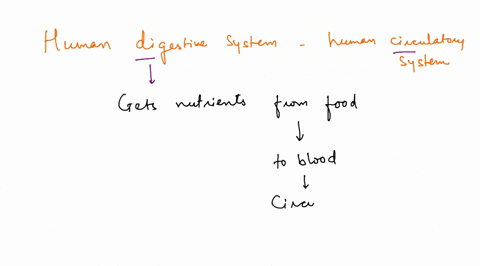 Human digestive system - human circulatory
system
Gets nutrients from food
to blood
Circu